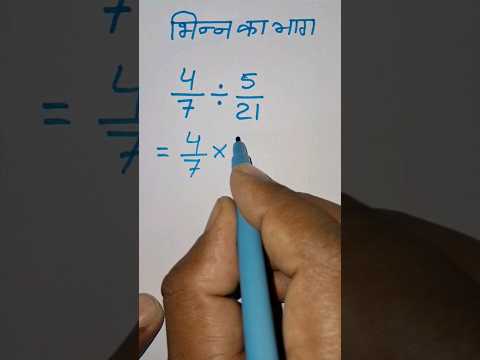 भिन्न का भाग
4/7 ÷ 5/21
= 4/7 ×